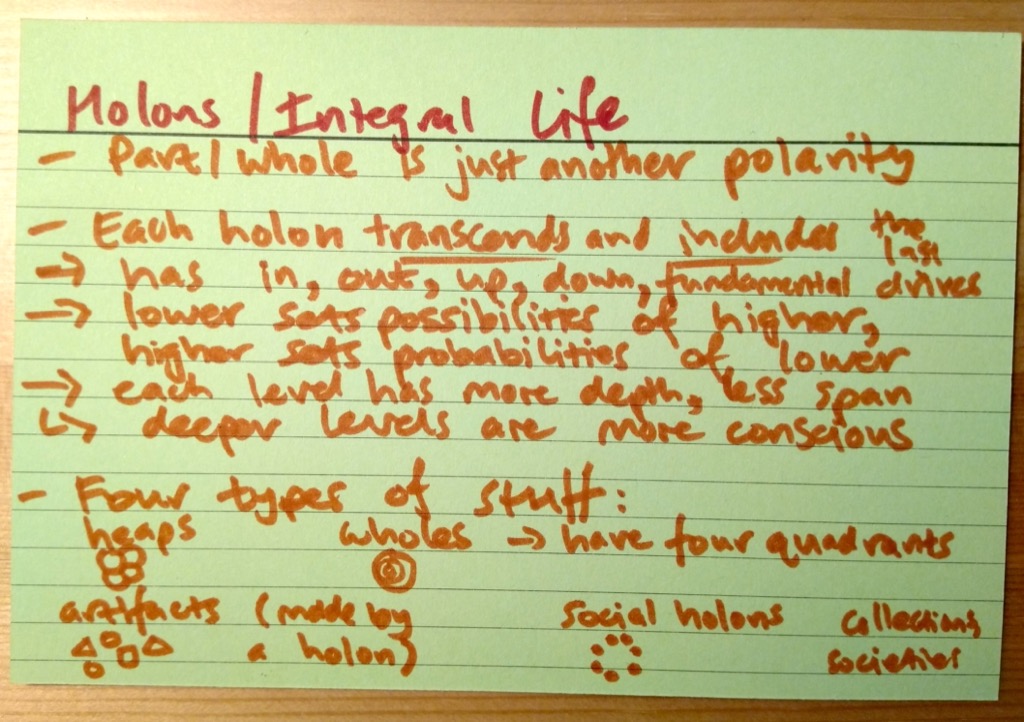 Holons / Integral Life
- Part / whole is just another polarity
- Each holon transcends and includes the last
→ has in, out, up, down, fundamental drives
→ lower sets possibilities of higher,
higher sets probabilities of lower
→ each level has more depth, less span
↳ deeper levels are more conscious
- Four types of stuff:
heaps wholes → have four quadrants
artifacts (made by a holon)
social holons collections, societies